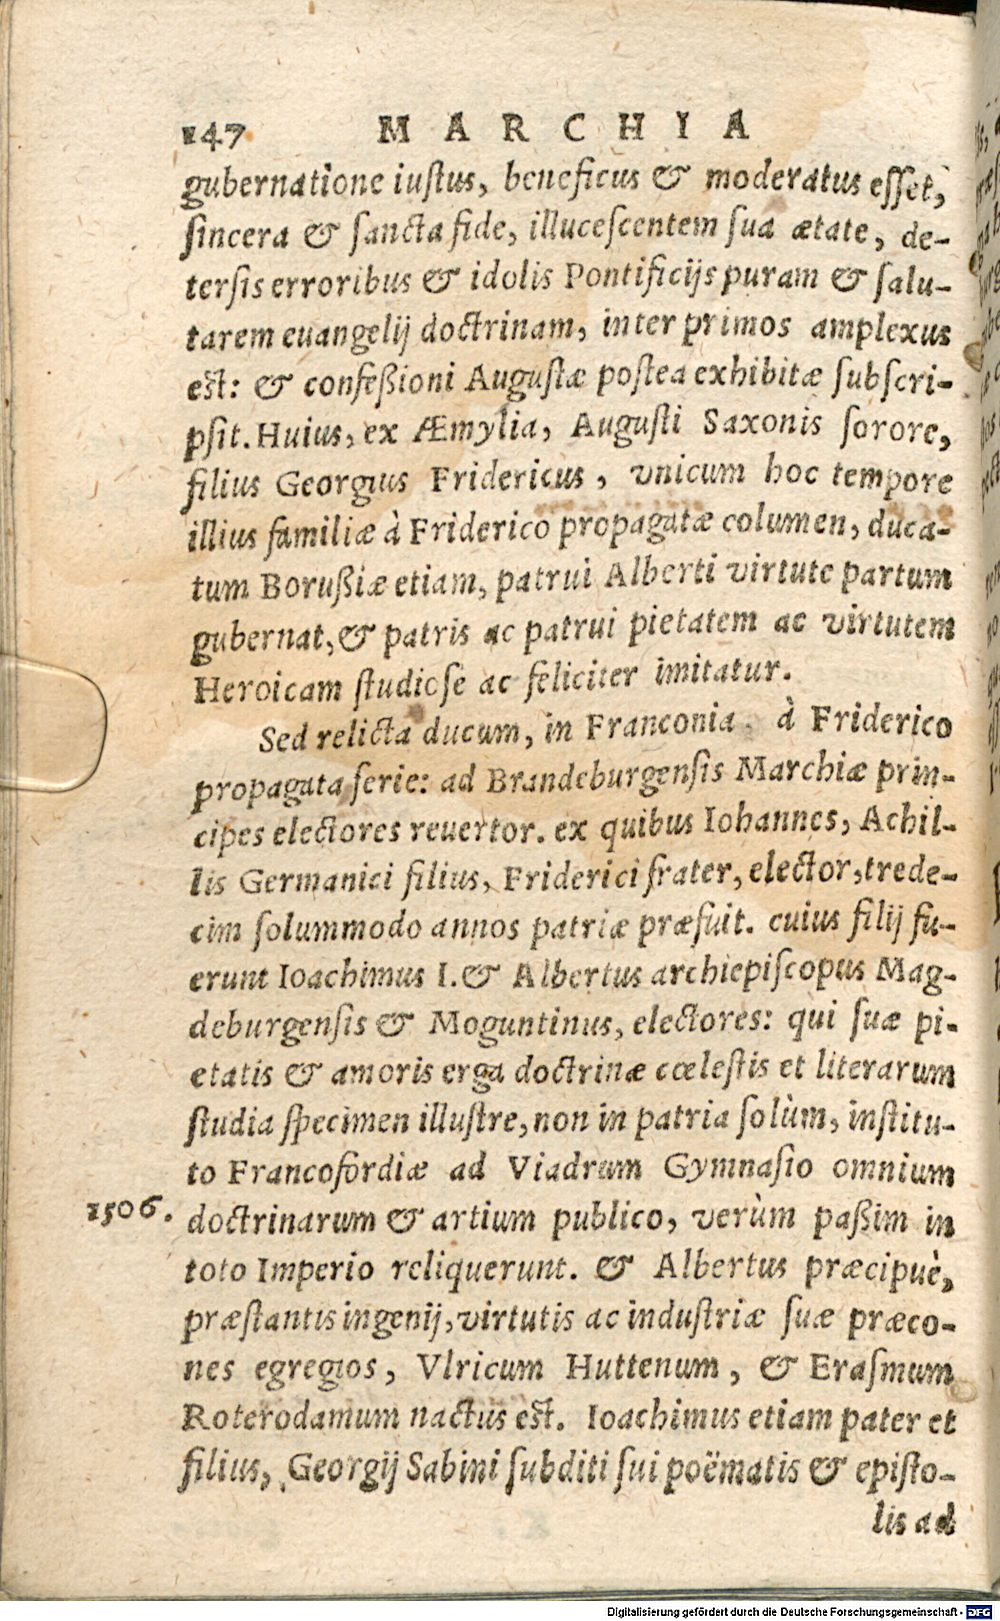 147 MARCHIA
gubernatione iuſtus, beneficus & moderatus eſſet,
ſincera & ſancta fide, illuceſcentem ſua ætate, de-
terſis erroribus & idolis Pontificijs puram & ſalu-
tarem euangelij doctrinam, inter primos amplexus
eſt: & confeßioni Auguſtæ poſtea exhibitæ ſubſcri-
pſit. Huius, ex Æmylia, Auguſti Saxonis ſorore,
filius Georgius Fridericus, vnicum hoc tempore
illius familiæ à Friderico propagatæ columen, duca-
tum Borußiæ etiam, patrui Alberti virtute partum
gubernat, & patris ac patrui pietatem ac virtutem
Heroicam ſtudioſe ac feliciter imitatur.
Sed relicta ducum, in Franconia à Friderico
propagata ſerie: ad Brandeburgenſis Marchiæ prin-
cipes electores reuertor. ex quibus Iohannes, Achil-
lis Germanici filius, Friderici frater, elector, trede-
cim ſolummodo annos patriæ præfuit. cuius filij fu-
erunt Ioachimus I. & Albertus archiepiſcopus Mag-
deburgenſis & Moguntinus, electores: qui ſuæ pi-
etatis & amoris erga doctrinæ cœleſtis et literarum
ſtudia ſpecimen illuſtre, non in patria ſolùm, inſtitu-
to Francofordiæ ad Viadrum Gymnaſio omnium
1506. doctrinarum & artium publico, verùm paßim in
toto Imperio reliquerunt. & Albertus præcipuè,
præſtantis ingenij, virtutis ac induſtriæ ſuæ præco-
nes egregios, Vlricum Huttenum, & Eraſmum
Roterodamum nactus eſt. Ioachimus etiam pater et
filius, Georgij Sabini ſubditi ſui poëmatis & epiſto-
lis ad
Digitalisierung gefördert durch die Deutsche Forschungsgemeinschaft - DFG